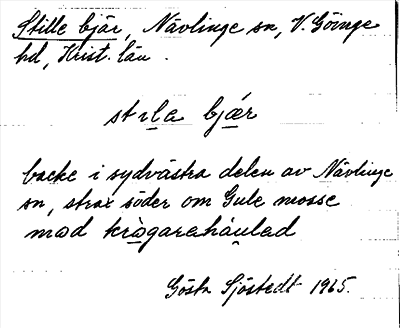 Stille bjär, Nävlinge sn, V. Göinge
hd, Krist. län.
stıla bjǽr
backe i sydvästra delen av Nävlinge
sn, strax söder om Gule mosse
mad krògarahåulad
Gösta Sjöstedt 1965.